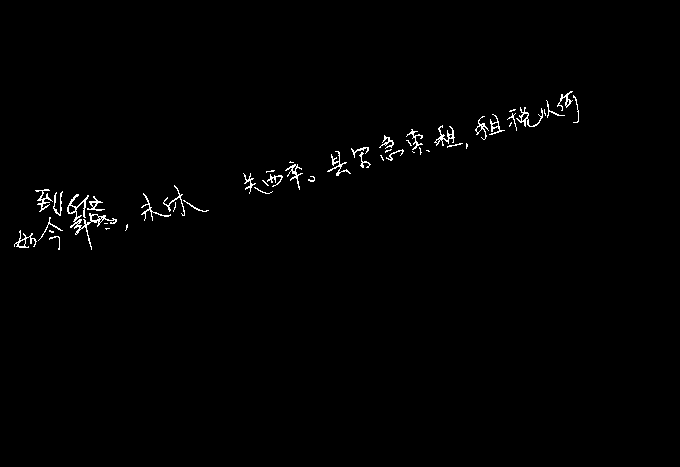 到位
如今,未休 关西卒。县官急索租,租税从何